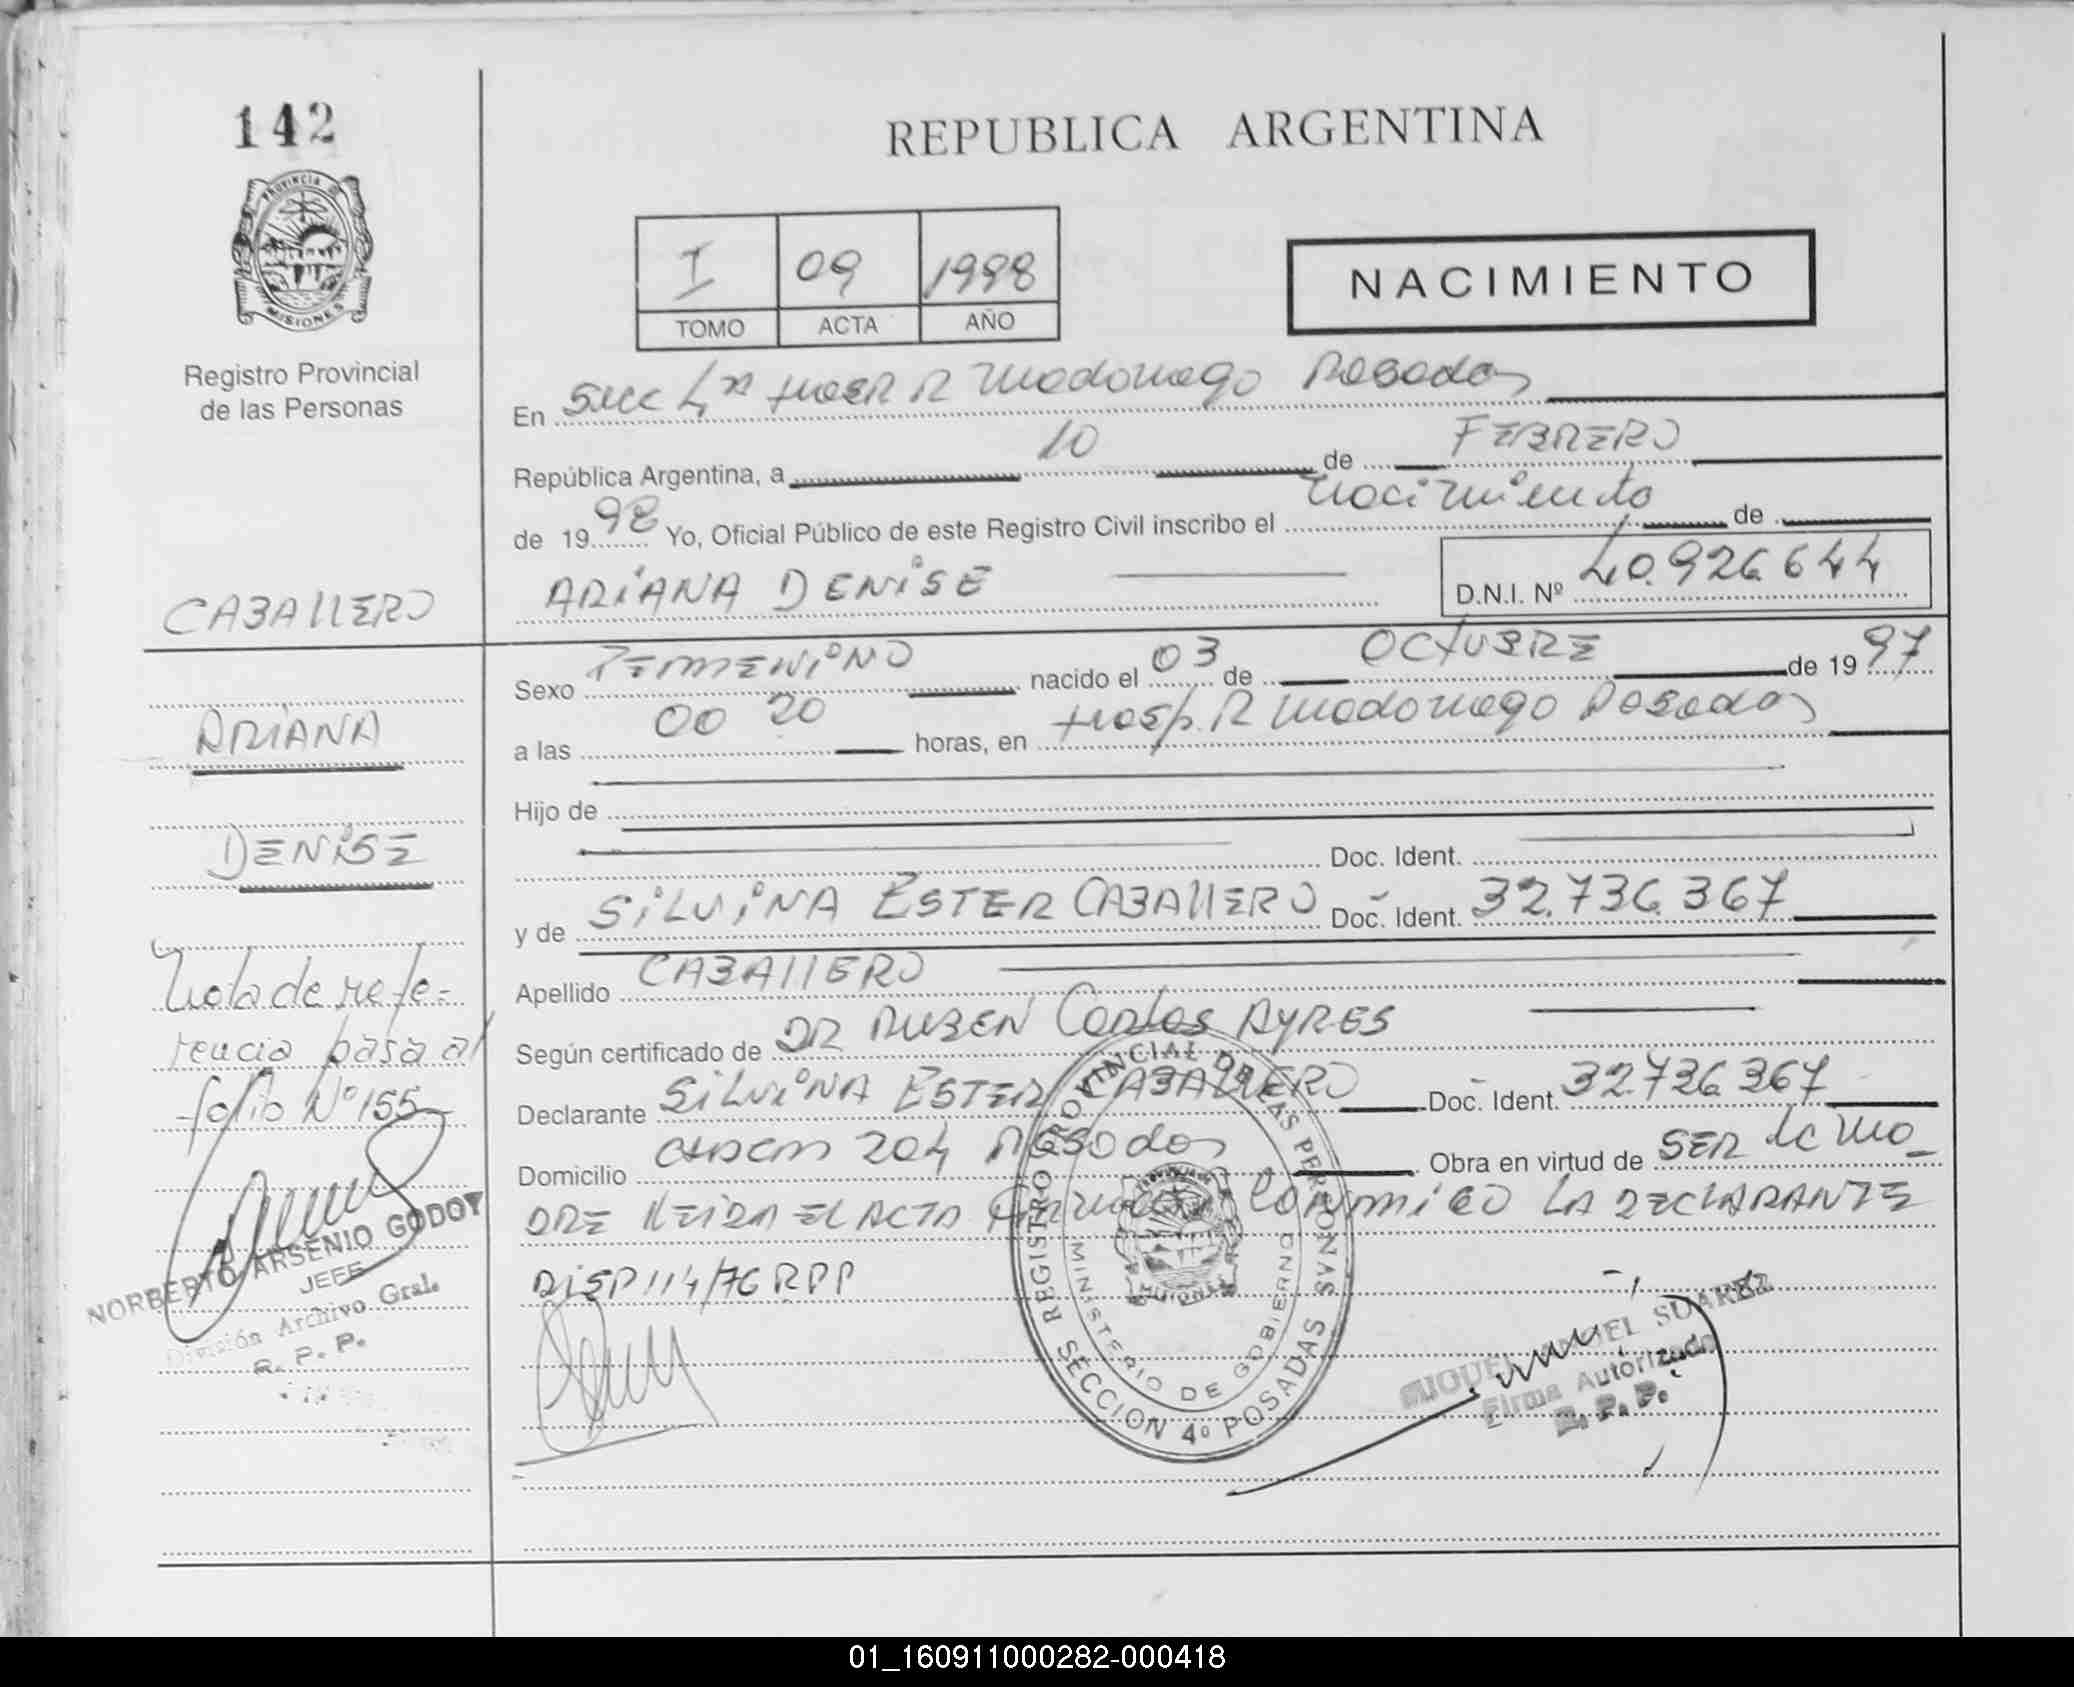 142
PROVINCIA DE
MISIONES
Registro Provincial
de las Personas
CABALLERO
ARIANA
DENISE
Nota de refe=
rencia pasa al
folio Nº 155
NORBERTO ARSENIO GODOY
JEFE
División Archivo Gral.
R. P. P.
REPUBLICA ARGENTINA
I 09 1998
TOMO ACTA AÑO
NACIMIENTO
En Secc 4ta Hosp R Madariaga Posadas
República Argentina, a 10 de FEBRERO
de 1998 Yo, Oficial Público de este Registro Civil inscribo el nacimiento de
ARIANA DENISE D.N.I. Nº 40.926.644
Sexo FEMMENINO nacido el 03 de OCTUBRE de 1997
a las 00 20 horas, en Hosp. R Madariaga Posadas
Hijo de
Doc. Ident.
y de SILVINA ESTER CABALLERO Doc. Ident. 32.736.367
Apellido CABALLERO
Según certificado de DR RUBEN Carlos AYRES
Declarante SILVINA ESTER CABALLERO Doc. Ident. 32736367
Domicilio 204 Posadas Obra en virtud de SER la ma_
DRE LEIDA EL ACTA Conmigo LA DECLARANTE
DISP 114/76 RPP
REGISTRO PROVINCIAL DE LAS PERSONAS
MINISTERIO DE GOBIERNO
SECCION 4º POSADAS
MIGUEL ANGEL SUAREZ
Firma Autorizada
R. P. P.
01_160911000282-000418